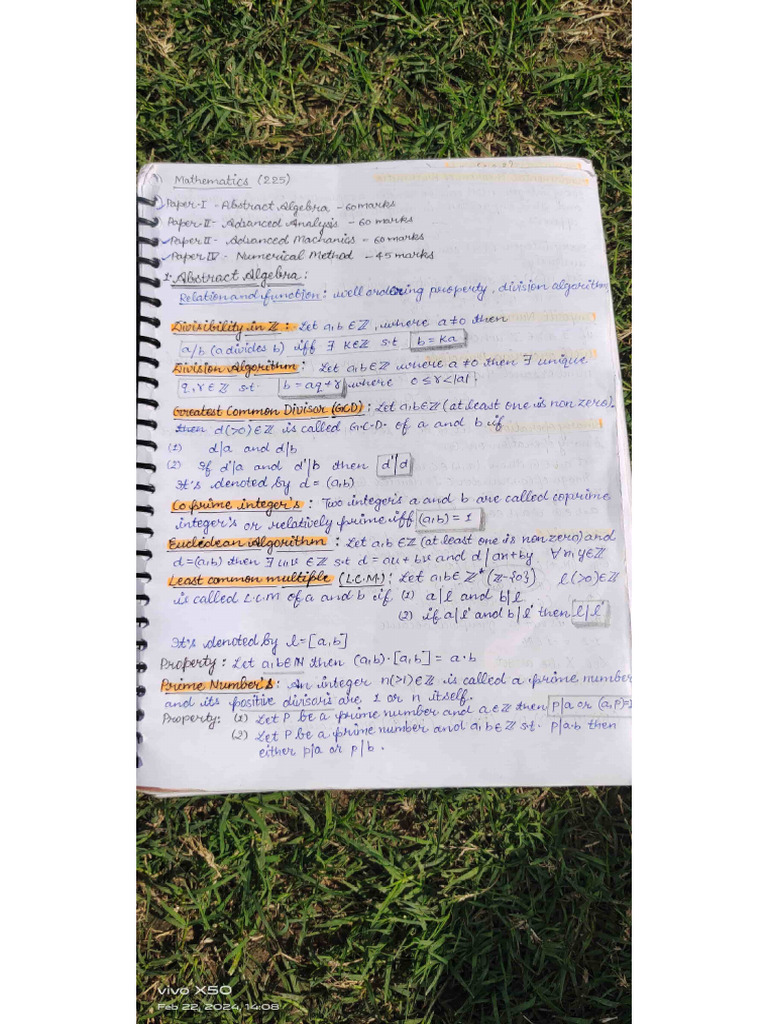 Mathematics (225)
Paper-I - Abstract Algebra - 60 marks
Paper-II - Advanced Analysis - 60 marks
Paper II - Advanced Machanics - 60 marks
Paper IV - Numerical Method - 45 marks
1. Abstract Algebra:
Relation and function: well ordering property, division algorithm
Divisibility in ℤ: Let a,b ∈ ℤ, where a≠0 then
a/b (a divides b) iff ∃ K∈ℤ s.t b = Ka
Division Algorithm: Let a,b∈ℤ where a ≠0 then ∃ unique
q,r ∈ ℤ s.t. b = aq+r, where 0≤r<|a|.
Greatest Common Divisor (GCD): Let a,b∈ℤ (at least one is non zero),
then d(>0)∈ℤ is called G.C.D. of a and b if
(1) d|a and d|b
(2) If d'|a and d'|b then d'|d
It's denoted by d = (a,b)
Co prime integer's: Two integer's a and b are called coprime
integer's or relatively prime iff (a,b) = 1
Euclidean Algorithm: Let a,b ∈ℤ (at least one is non zero) and
d=(a,b) then ∃ u,v ∈ℤ s.t d = au + bv and d|an+by ∀ m,y∈ℤ
Least common multiple (L.C.M.): Let a,b∈ℤ* (ℤ-{0}) l(>0)∈ℤ
is called L.C.M of a and b if (1) a|l and b|l
(2) if a|l' and b|l' then l|l'
It's denoted by l=[a,b]
Property: Let a,b∈ℕ then (a,b)·[a,b] = a·b
Prime Number's: An integer n(>1)∈ℤ is called a prime number
and its positive divisors are 1 or n itself.
Property: (1) Let P be a prime number and a∈ℤ then P|a or (a,P)=1
(2) Let P be a prime number and a,b∈ℤ s.t. p|a·b then
either p|a or p|b.
vivo X50
Feb 22, 2024, 14:08